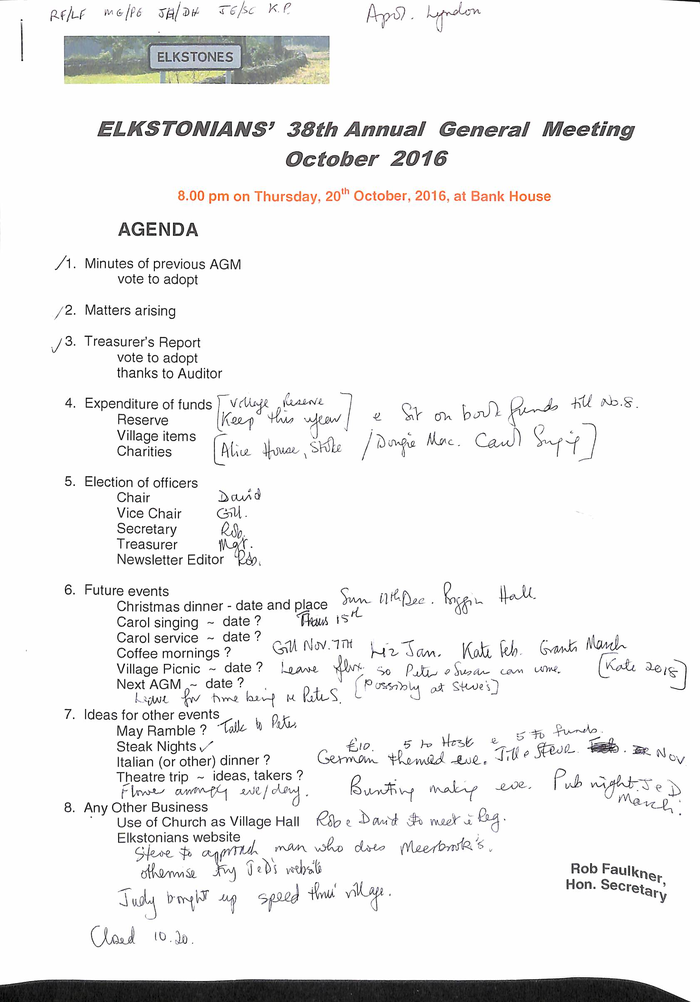 RF/LF MG/PG JH/DH JG/SC K.P. Apol. Lyndon
ELKSTONES
ELKSTONIANS' 38th Annual General Meeting
October 2016
8.00 pm on Thursday, 20th October, 2016, at Bank House
AGENDA
1. Minutes of previous AGM
vote to adopt
2. Matters arising
3. Treasurer's Report
vote to adopt
thanks to Auditor
4. Expenditure of funds [Village Reserve
Reserve [Keep this year] Sit on both funds till No.8.
Village items
Charities [Alice House, Stoke / Dougie Mac.
5. Election of officers
Chair David
Vice Chair Gill.
Secretary Rob.
Treasurer Mgt.
Newsletter Editor Rob.
6. Future events
Christmas dinner - date and place Sun 11th Dec. Biggin Hall.
Carol singing ~ date ? Thurs 15th
Carol service ~ date ?
Coffee mornings ? Gill Nov. 7th Liz Jan. Kate Feb. Grants March
Village Picnic ~ date ? Leave so Peter & Susan can come. (Kate 2018)
Next AGM ~ date ? [Possibly at Steve's]
Leave for time being re Pete S.
7. Ideas for other events
May Ramble ? Talk to Peter
Steak Nights ✓ £10. 5 to Host & 5 to funds.
Italian (or other) dinner ? German themed eve. Jill & Steve Nov
Theatre trip ~ ideas, takers ?
Flower eve/day. Bunting making eve. Pub night J & D
March.
8. Any Other Business
Use of Church as Village Hall Rob & David to meet Reg.
Elkstonians website
Steve to approach man who does Meerbrook's.
otherwise try J & D's website
Judy bought up speed thru' village.
Rob Faulkner,
Hon. Secretary
Closed 10.20.